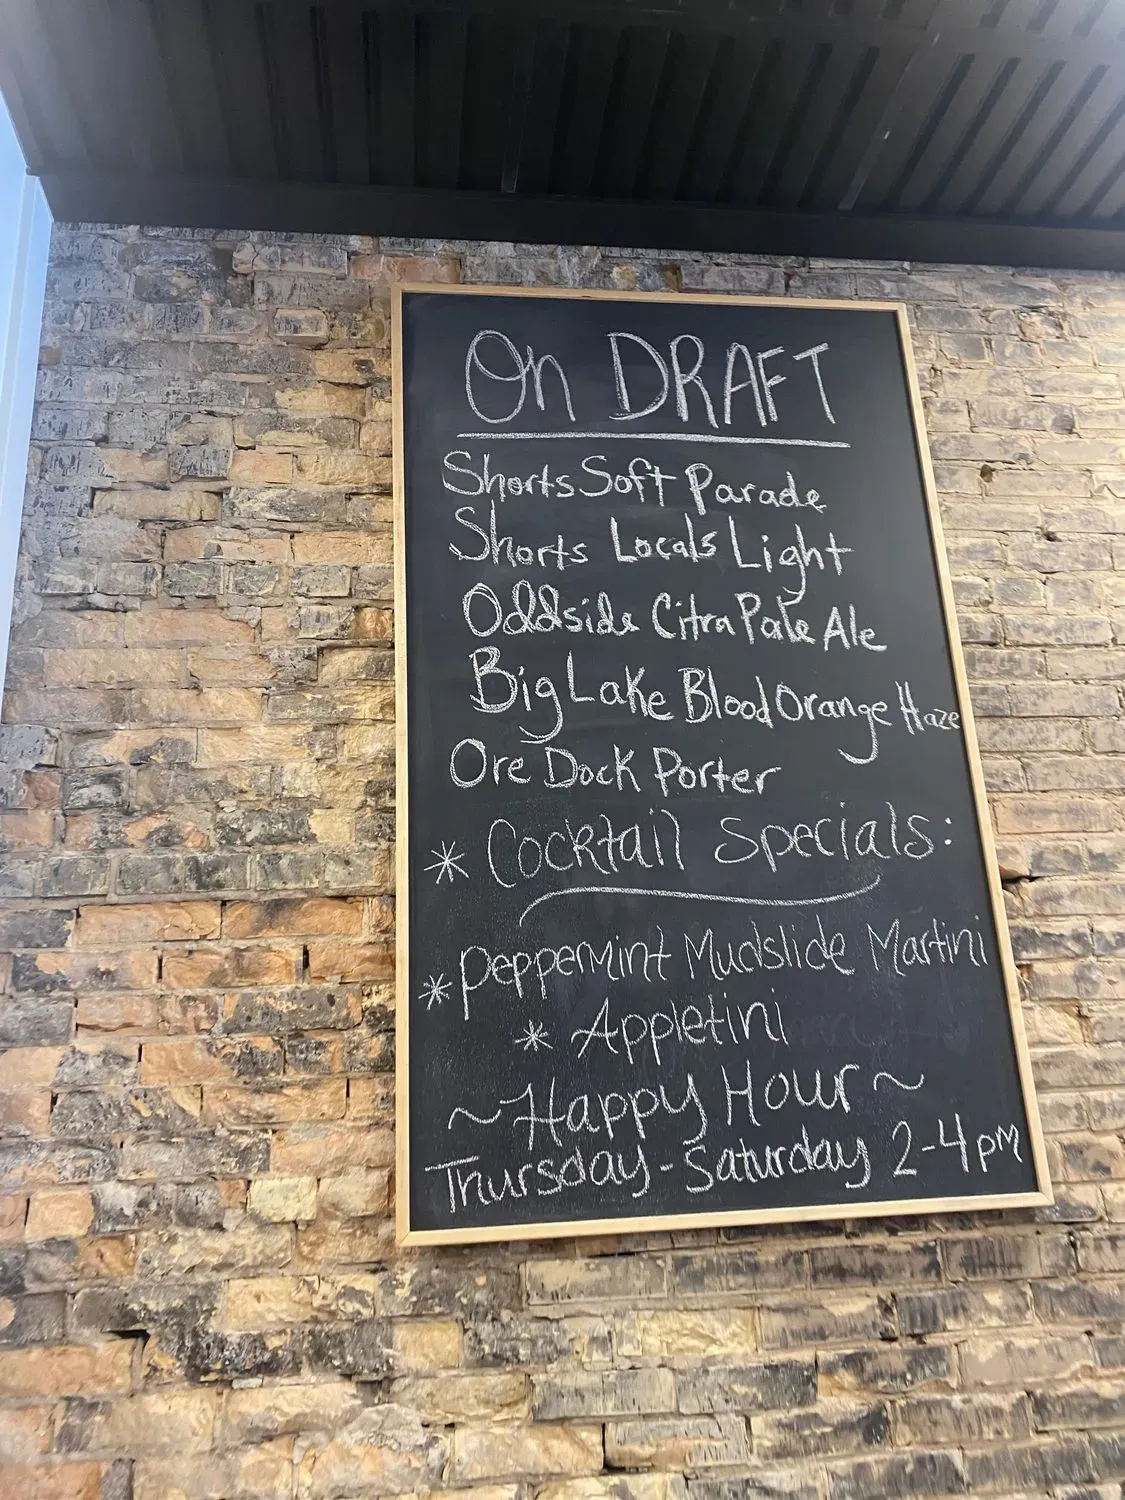 On DRAFT
Shorts Soft Parade
Shorts Locals Light
Oddside Citra Pale Ale
Big Lake Blood Orange Haze
Ore Dock Porter
* Cocktail Specials:
* Peppermint Mudslide Martini
* Appletini
~Happy Hour~
Thursday-Saturday 2-4pm